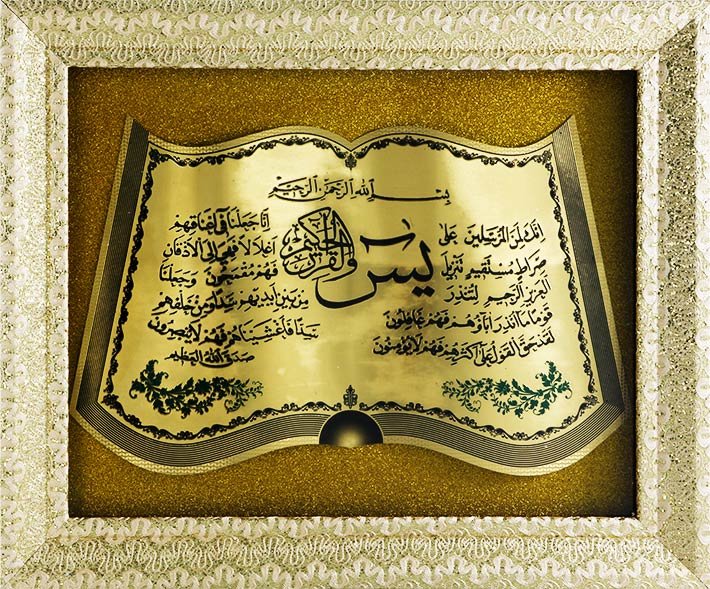 بسم الله الرحمن الرحيم
يس
والقرآن الحكيم
انك لمن المرسلين على
صراط مستقيم تنزيل
العزيز الرحيم لتنذر
قوما ما انذر آباؤهم فهم غافلون
لقد حق القول على اكثرهم فهم لا يؤمنون
انا جعلنا في اعناقهم
اغلالا فهي الى الاذقان
فهم مقمحون وجعلنا
من بين ايديهم سدا ومن خلفهم
سدا فاغشيناهم فهم لا يبصرون
صدق الله العظيم